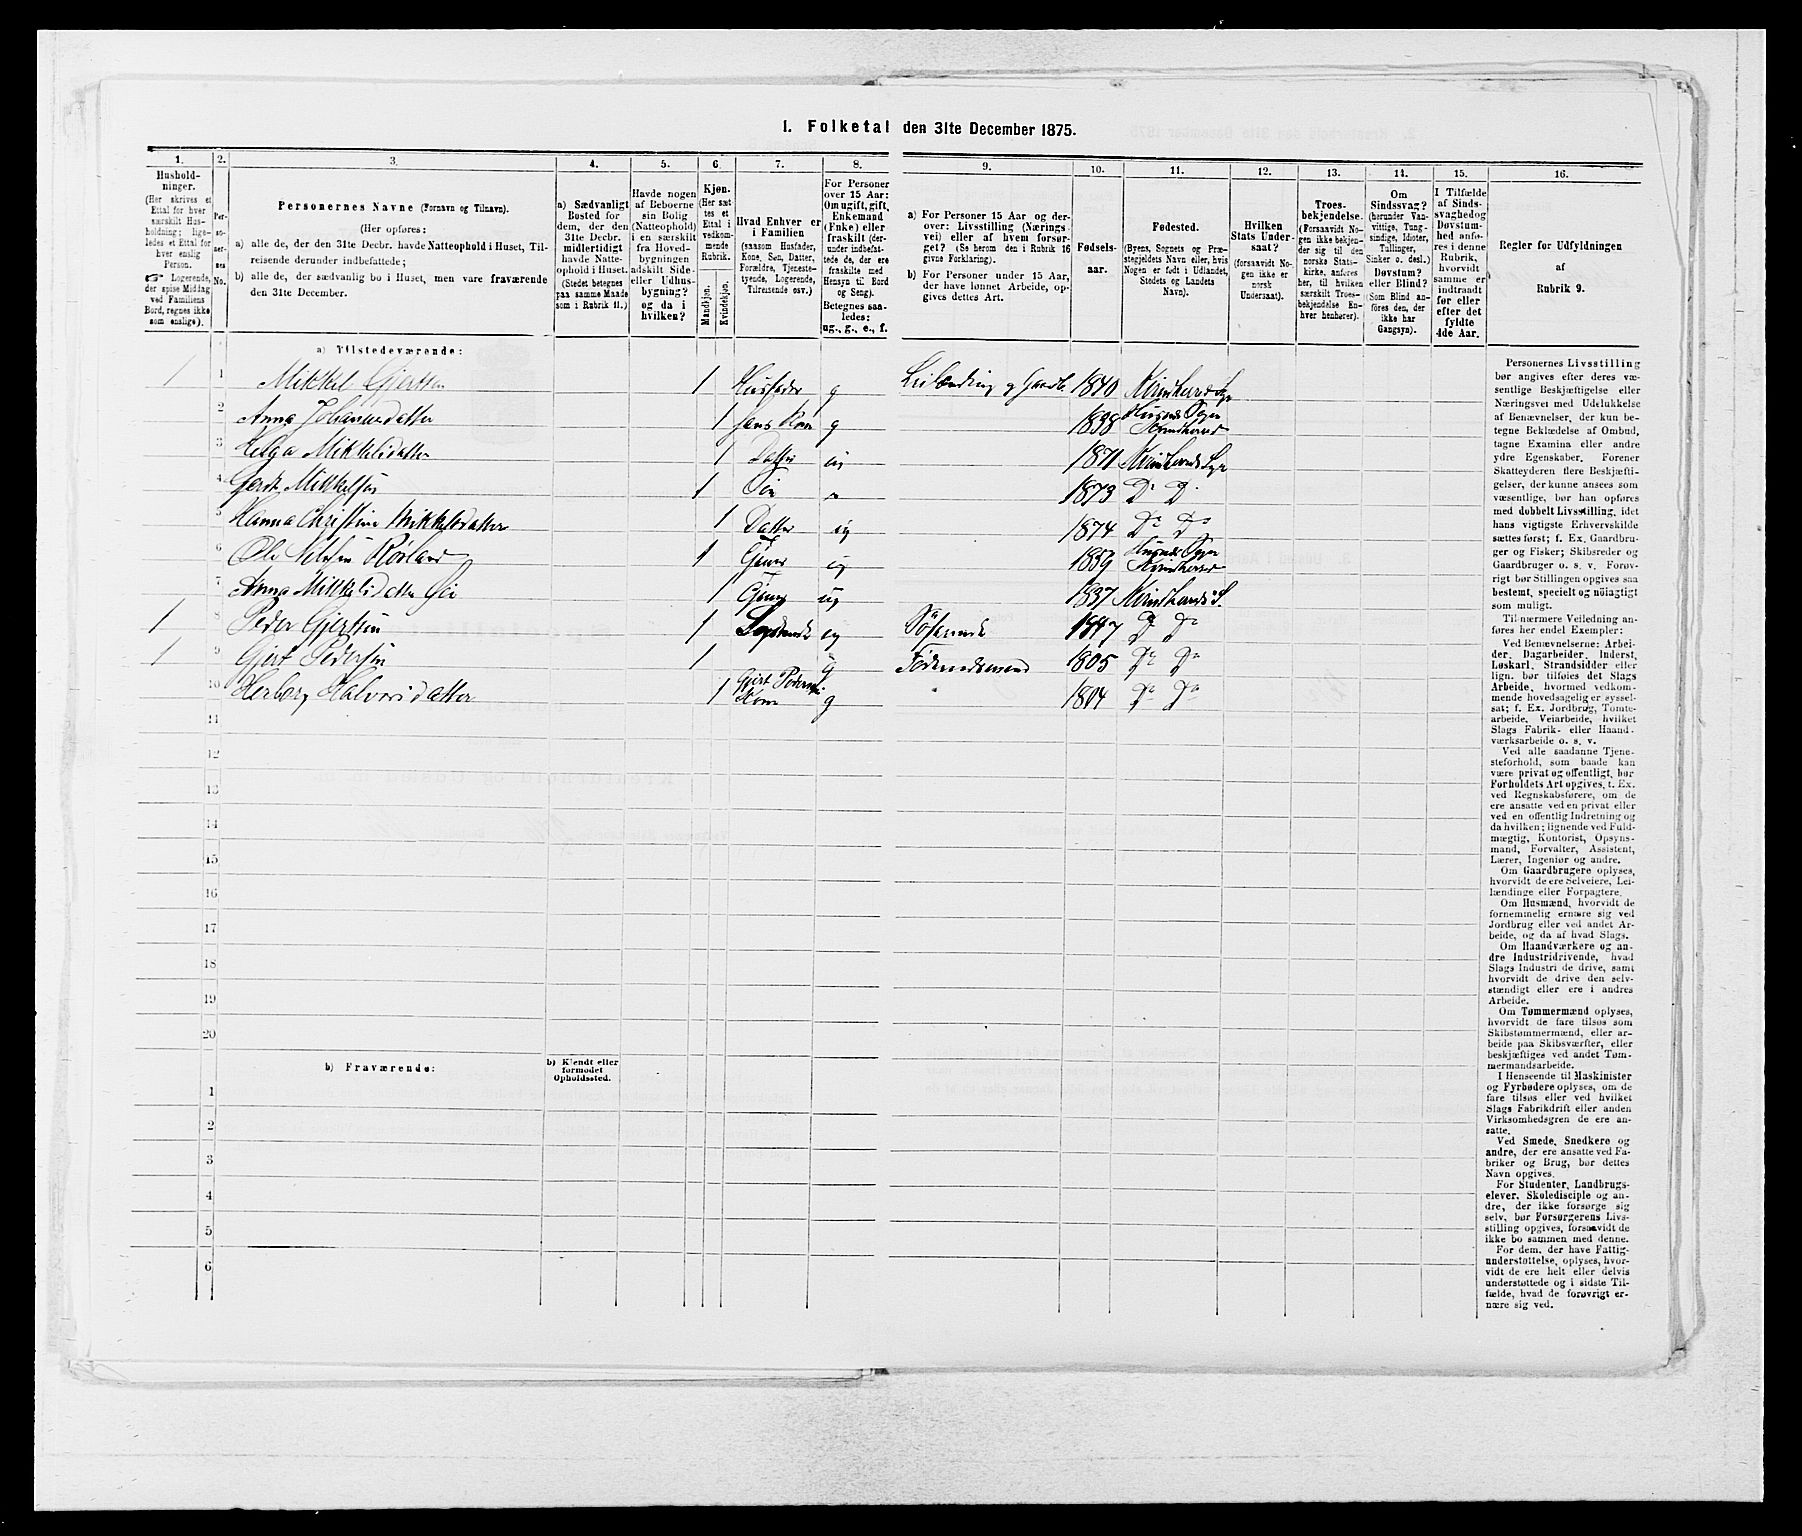 1. Folketal den 31te December 1875.
1. 2. 3. 4. 5. 6. 7. 8. 9. 10. 11. 12. 13. 14. 15. 16.
Hushold-
ninger.
(Her skrives et
Ettal for hver
særskilt Hus-
holdning; lige-
ledes et Ettal for
hver enslig
Person.
Logerende,
der spise Middag
ved Familiens
Bord, regnes ikke
som enslige).
Per-
so-
ner-
nes
No.
Personernes Navne (Fornavn og Tilnavn).
(Her opføres:
a) alle de, der den 31te Decbr. havde Natteophold i Huset, Til-
reisende derunder indbefattede;
b) alle de, der sædvanlig bo i Huset, men vare fraværende
den 31te December.
a) Sædvanligt
Bosted for
dem, der den
31te Decbr.
midlertidigt
havde Natte-
ophold i Huset.
(Stedet betegnes
paa samme Maade
som i Rubrik 11.)
Havde nogen
af Beboerne
sin Bolig
(Natteophold)
i en særskilt
fra Hoved-
bygningen
adskilt Side-
eller Udhus-
bygning?
og da i
hvilken?
Kjøn.
(Her sæt-
tes et
Ettal i
vedkom-
mende
Rubrik.
Mandkjøn.
Kvindekjøn.
Hvad Enhver er
i Familien
(saasom Husfader,
Kone, Søn, Datter,
Forældre, Tjeneste-
tyende, Logerende,
Tilreisende osv.)
For Personer
over 15 Aar:
Om ugift, gift,
Enkemand
(Enke) eller
fraskilt (der-
under indbefat-
tede de, der ere
fraskilte med
Hensyn til Bord
og Seng).
Betegnes saa-
ledes:
ug., g., e., f.
a) For Personer 15 Aar og der-
over: Livsstilling (Nærings-
vei) eller af hvem forsør-
get? (Se herom den i Rubrik 16
givne Forklaring).
b) For Personer under 15 Aar,
der have lønnet Arbeide, op-
gives dettes Art.
Fødsels-
aar.
Fødested.
(Byens, Sognets og Præ-
stegjeldets Navn eller, hvis
Nogen er født i Udlandet,
Stedets og Landets
Navn).
Hvilken
Stats Under-
saat?
(forsaavidt No-
gen ikke er
norsk
Undersaat).
Troes-
bekjendelse.
(Forsaavidt No-
gen ikke bekjen-
der sig til den
norske Stats-
kirke, anføres
her, til hvilken
særskilt Troes-
bekjendelse En-
hver henhører).
Om
Sindssvag?
(herunder Van-
vittige, Tung-
sindige, Idioter,
Tullinger,
Sinker o. desl.)
Døvstum?
eller Blind?
(Som Blind an-
føres den, der
ikke har
Gangsyn).
I Tilfælde
af Sinds-
svaghed og
Døvstum-
hed anfø-
res i denne
Rubrik,
hvorvidt
samme er
indtraadt
før eller
efter det
fyldte
4de Aar.
Regler for Udfyldningen
af
Rubrik 9.
a) Tilstedeværende:
1 1 Mikkel Gjertsen 1 Husfader g Leilænding 1840
2 Anna 1 hans Kone g 1838 Husnes Sogn
3 Helga Mikkelsdatter 1 Datter ug 1871
4 Gjert Mikkelsen 1 Søn " 1873 Do Do
5 Hanna Christine Mikkelsdatter 1 Datter ug 1874 Do Do
6 Ole 1 ug 1859 Husnes Sogn
7 Anna Mikkelsdatter 1 ug 1837
1 8 Peder Gjertsen 1 ug 1847 Do Do
1 9 Gjert Pedersen 1 g Føderaadsmand 1805 Do Do
10 Herborg Halvorsdatter 1 Gjert Pedersens Kone g " 1804 Do Do
11
12
13
14
15
16
17
18
19
20
b) Fraværende:
b) Kjendt eller
formodet
Opholdssted.
1
2
3
4
5
6
Personernes Livsstilling
bør angives efter deres væ-
sentlige Beskjæftigelse eller
Næringsvei med Udelukkelse
af Benævnelser, der kun be-
tegne Beklædelse af Ombud,
tagne Examina eller andre
ydre Egenskaber. Forener
Skatteyderen flere Beskjæfti-
gelser, der kunne ansees som
væsentlige, bør han opføres
med dobbelt Livsstilling, idet
hans vigtigste Erhvervskilde
sættes først; f. Ex. Gaardbru-
ger og Fisker; Skibsreder og
Gaardbruger o. s. v. Forøv-
rigt bør Stillingen opgives saa
bestemt, specielt og nøiagtigt
som muligt.
Til nærmere Veiledning an-
føres her endel Exempler:
Ved Benævnelserne: Arbei-
der, Dagarbeider, Inderst,
Løskarl, Strandsidder eller
lign. bør tilføies det Slags
Arbeide, hvormed vedkom-
mende hovedsagelig er syssel-
sat; f. Ex. Jordbrug, Tomte-
arbeide, Veiarbeide, hvilket
Slags Fabrik- eller Haand-
værksarbeide o. s. v.
Ved alle saadanne Tjene-
steforhold, som baade kan
være privat og offentligt, bør
Forholdets Art opgives, t. Ex.
ved Regnskabsførere, om de
ere ansatte ved en privat eller
ved en offentlig Indretning og
da hvilken; lignende ved Fuld-
mægtig, Kontorist, Opsyns-
mand, Forvalter, Assistent,
Lærer, Ingeniør og andre.
Om Gaardbrugere oplyses,
hvorvidt de ere Selveiere, Lei-
lændinge eller Forpagtere.
Om Husmænd, hvorvidt de
fornemmelig ernære sig ved
Jordbrug eller ved andet Ar-
beide, og da af hvad Slags.
Om Haandværkere og an-
dre Industridrivende, hvad
Slags Industri de drive, samt
hvorvidt de drive den selv-
stændigt eller ere i andres
Arbeide.
Om Tømmermænd oplyses,
hvorvidt de fare tilsøs som
Skibstømmermænd, eller ar-
beide paa Skibsværfter, eller
beskjæftiges ved andet Tøm-
mermandsarbeide.
I Henseende til Maskinister
og Fyrbødere oplyses, om de
fare tilsøs eller ved hvilket
Slags Fabrikdrift eller anden
Virksomhedsgren de ere an-
satte.
Ved Smede, Snedkere og
andre, der ere ansatte ved Fa-
briker og Brug, bør dettes
Navn opgives.
For Studenter, Landbrugs-
elever, Skoledisciple og an-
dre, der ikke forsørge sig
selv, bør Forsørgerens Livs-
stilling opgives, forsaavidt de
ikke bo sammen med denne.
For dem, der have Fattig-
understøttelse, oplyses, hvor-
vidt de ere helt eller delvis
understøttede og i sidste Til-
fælde, hvad de forøvrigt er-
nære sig ved.